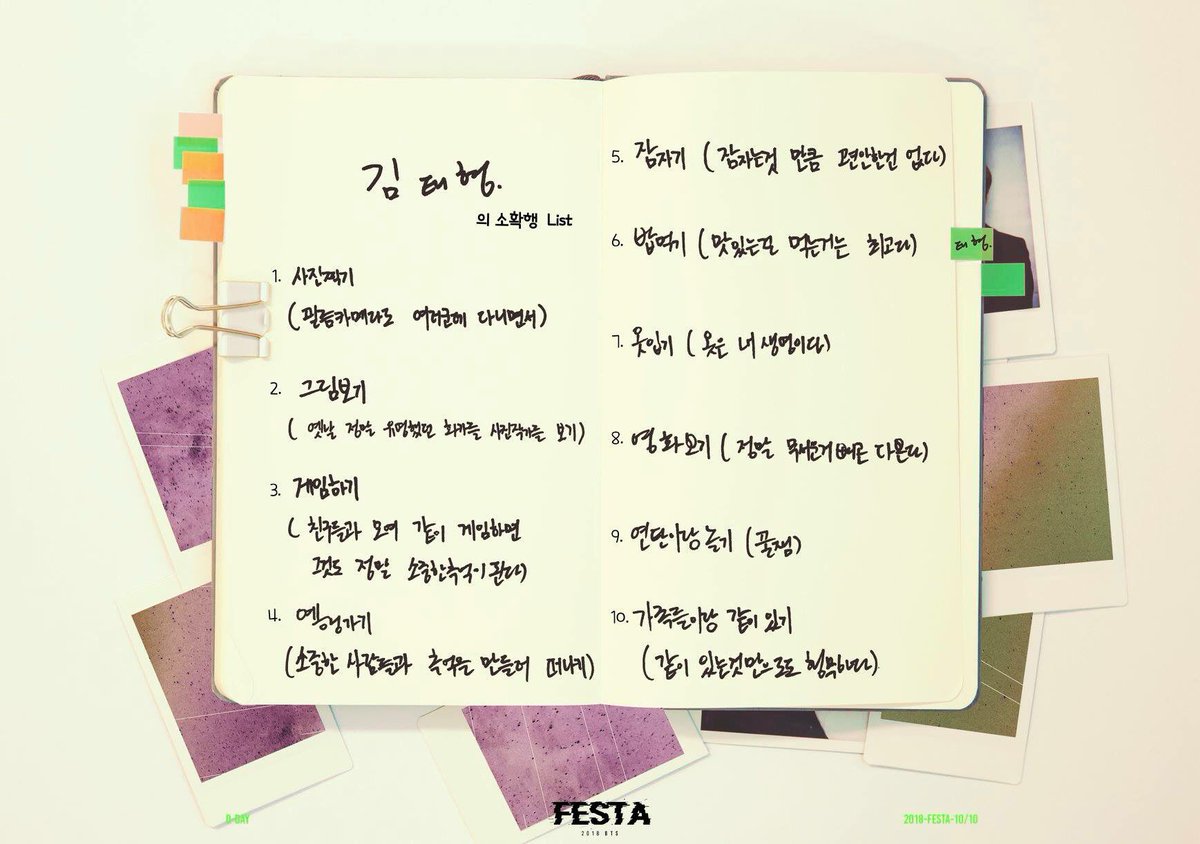 김태형.
의 소확행 List
1. 사진찍기
(필름카메라도 여러군데 다니면서)
2. 그림보기
( 옛날 정말 유명했던 화가들 사진작가들 보기)
3. 게임하기
( 친구들과 모여 같이 게임하면
그것도 정말 소중한추억이 된다)
4. 여행가기
(소중한 사람들과 추억을 만들러 떠나기)
5. 잠자기 (잠자는것 만큼 편안한건 없다)
6. 밥먹기 (맛있는걸 먹는거는 최고다)
태형.
7. 옷입기 (옷은 내 생명이다)
8. 영화보기 (정말 무서운거 빼곤 다본다)
9. 연탄이랑 놀기 (꿀잼)
10. 가족들이랑 같이 있기
(같이 있는것만으로도 행복하다)
D-DAY
FESTA
2018 BTS
2018-FESTA-10/10